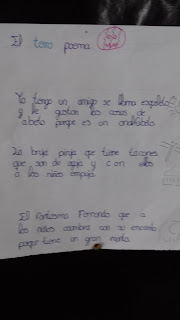 El toro poema
Yo tengo un amigo se llama esqueleto
y le gustan las cosas de
abeto porque es un analfabeto
La bruja piruja que tiene tacones
que son de aguja y con ellos
a los niños empuja
El fantasma Fernando que a
los niños asombra con su encanto
porque tiene un gran manto